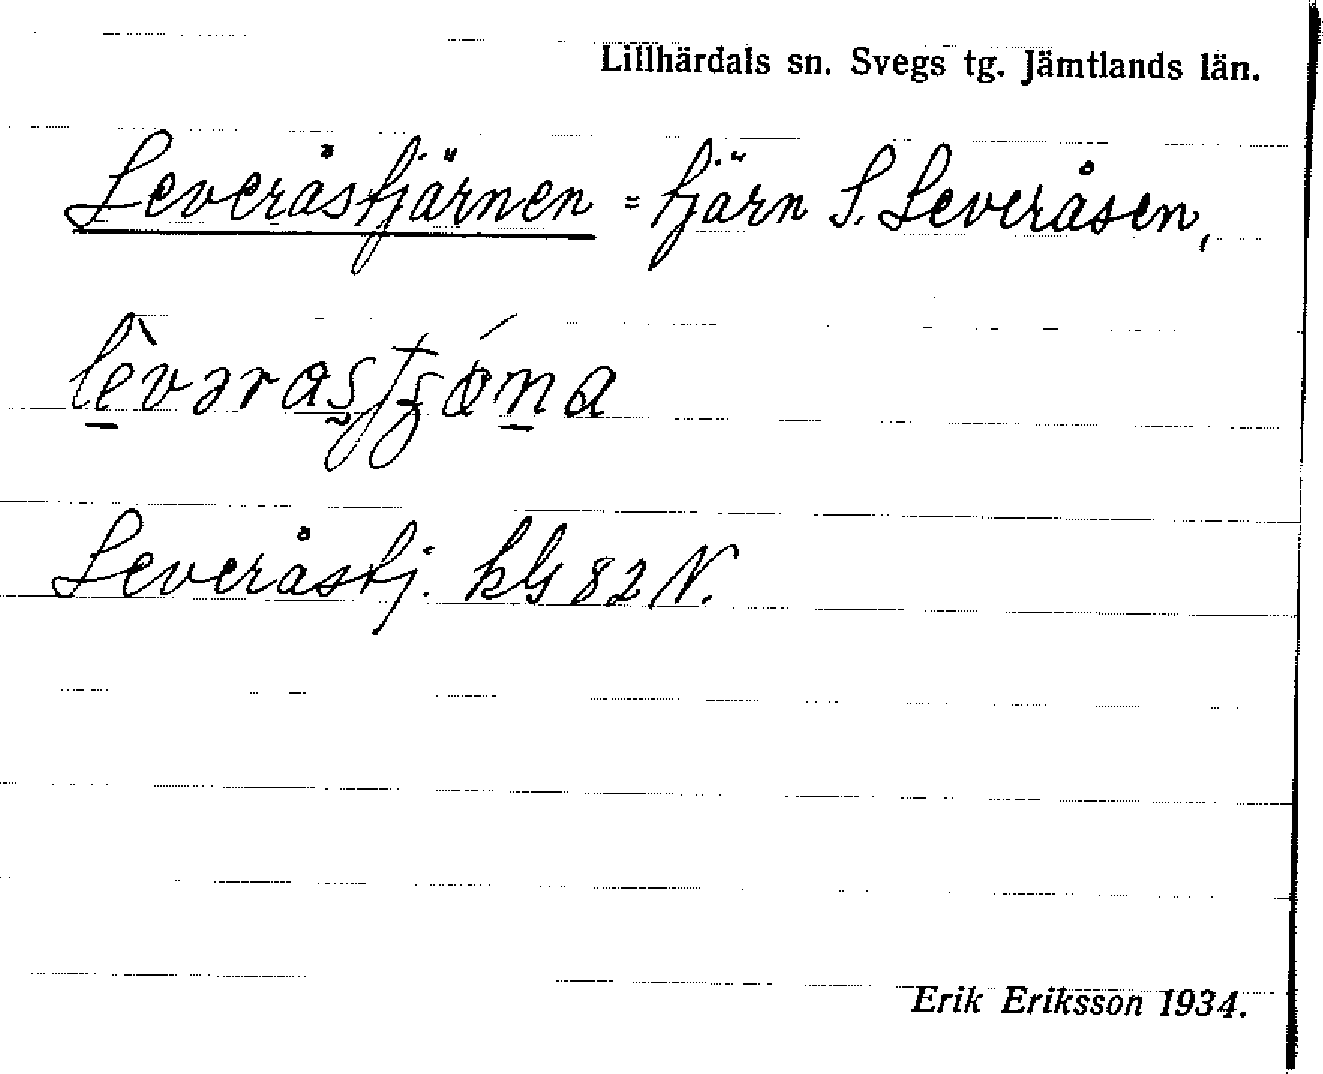 Lillhärdals sn. Svegs tg. Jämtlands län.
Leveråstjärnen = tjärn S. Leveråsen,
Leveråstj. kbl 82 N.
Erik Eriksson 1934.